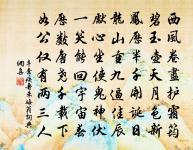 西風卷盡護霜筠
碧玉壺天月色新
鳳歷半千開誕日
龍山重九逼佳辰
獻心坐使鬼神伏
一笑能回宇宙春
歷數唐堯千載下
如公僅有兩三人
辛棄疾壽朱晦翁詞